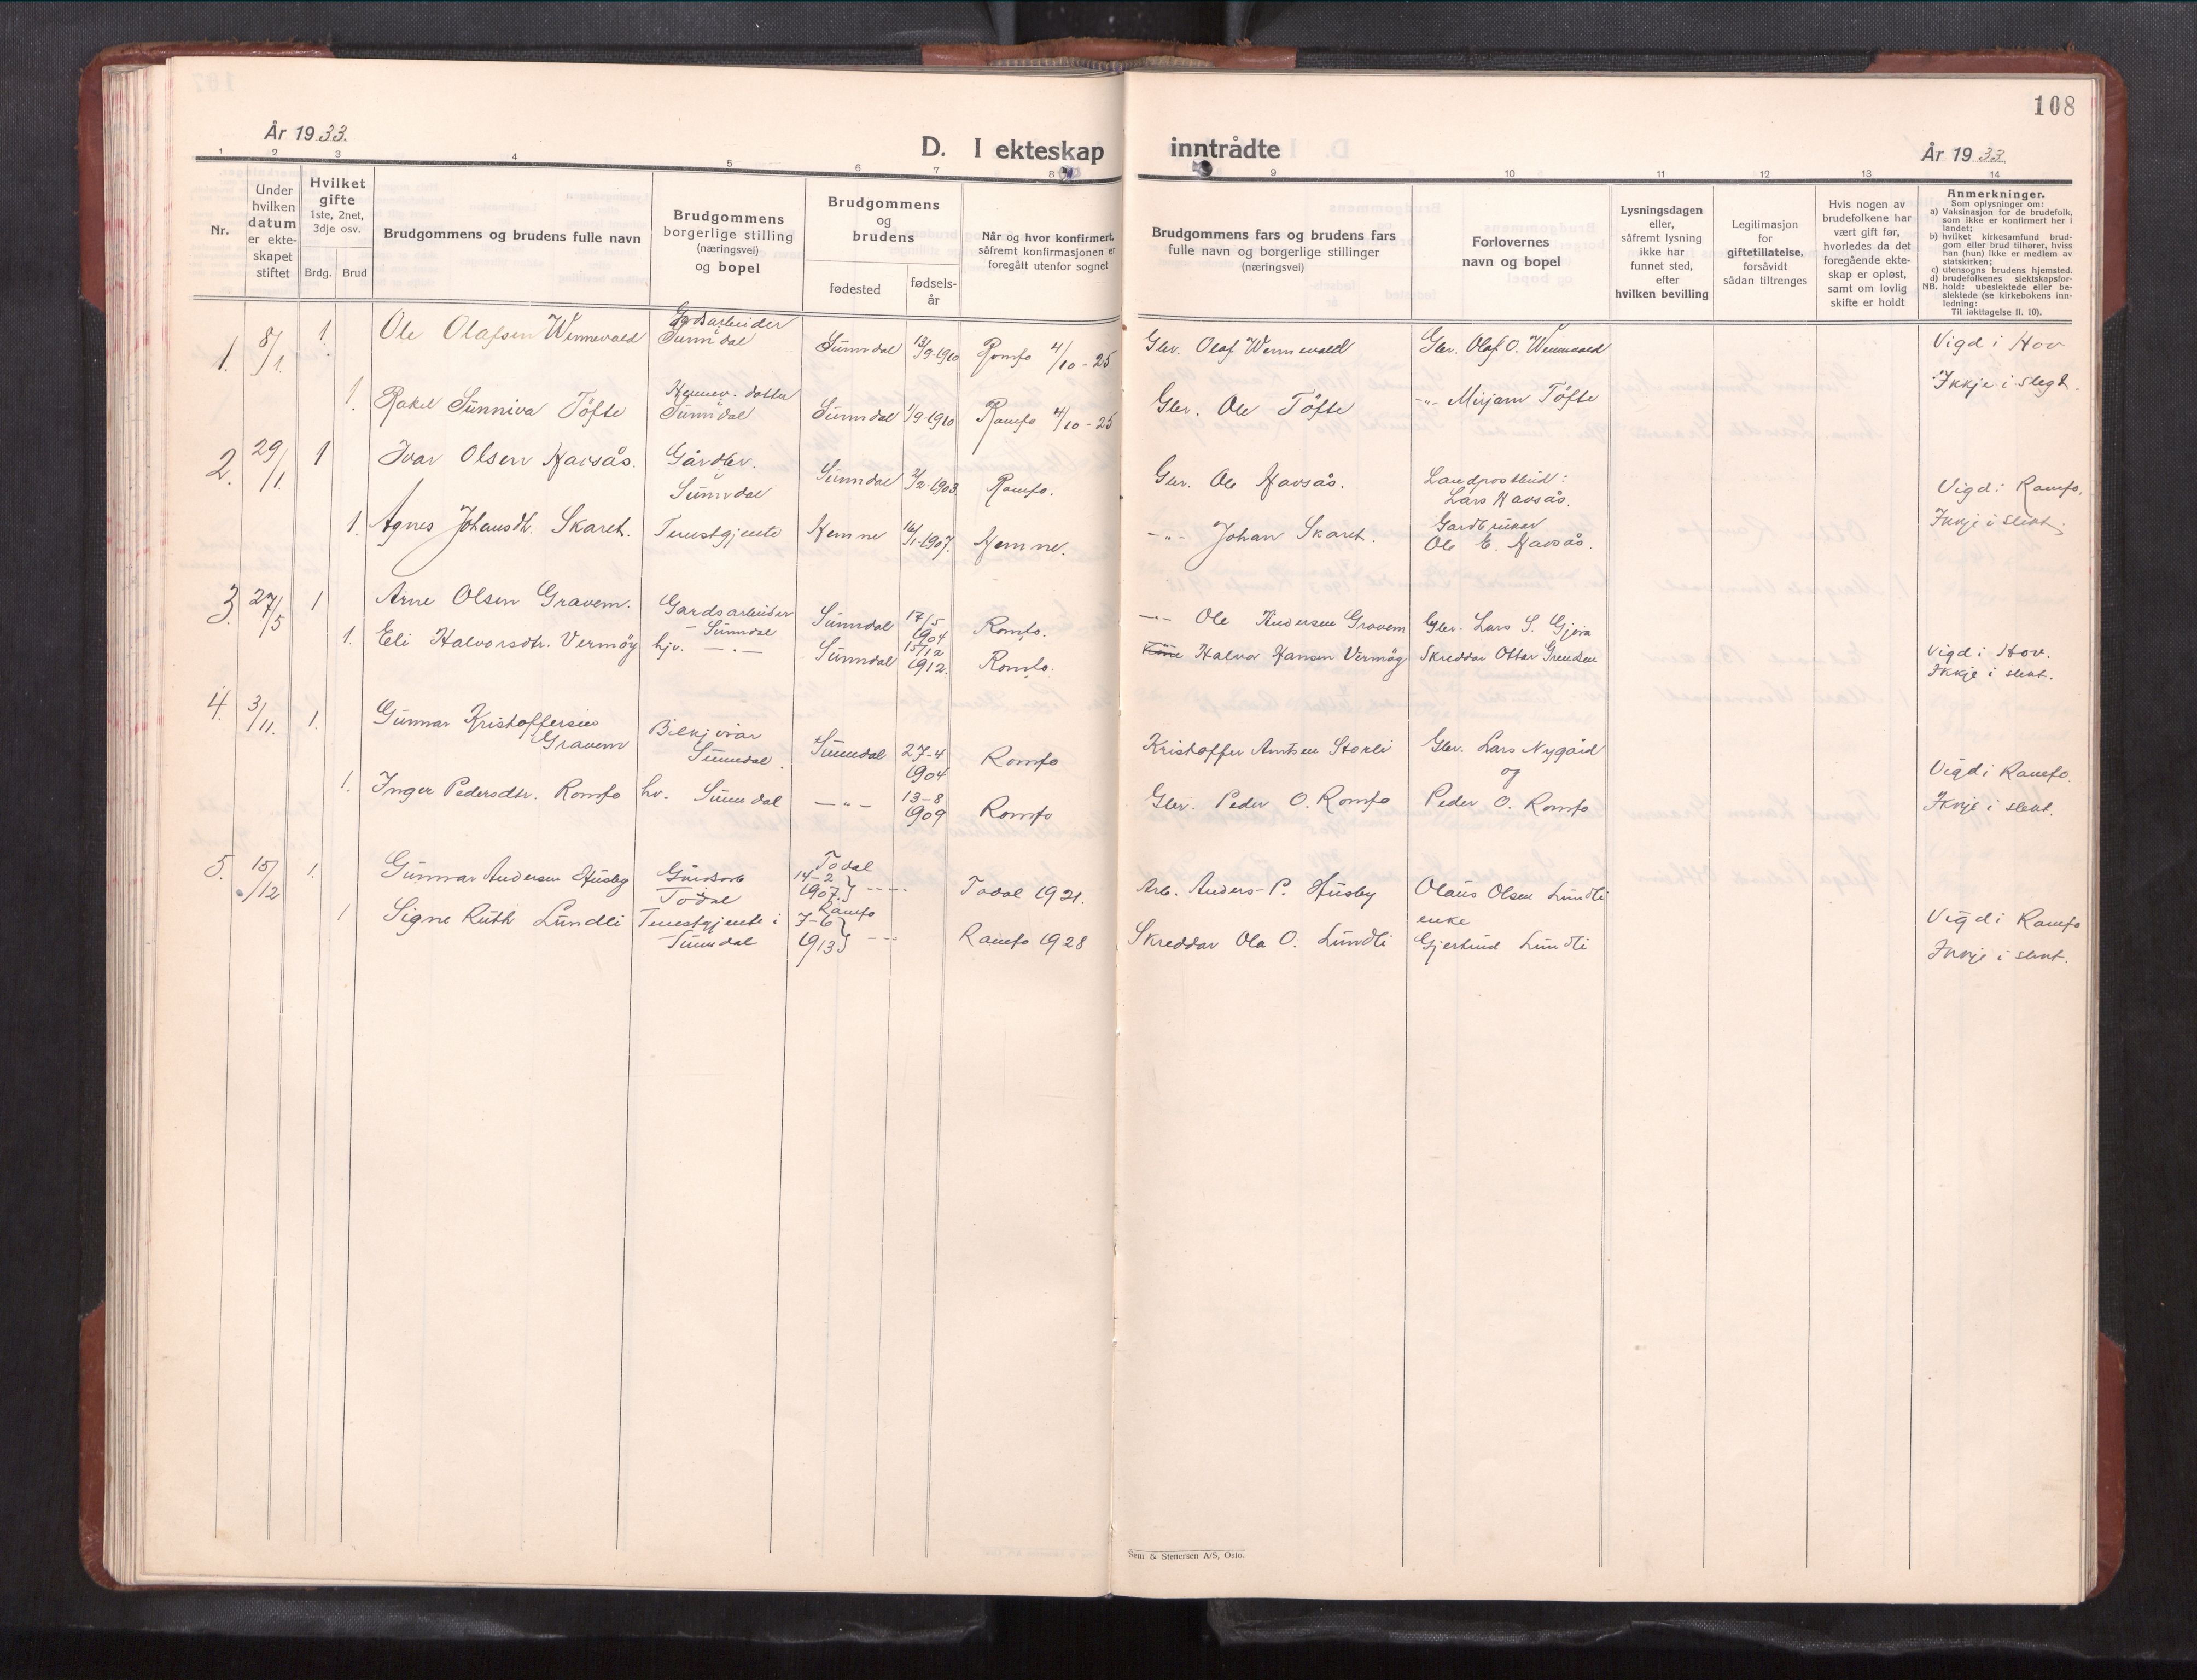 108
År 1933.
D. I ekteskap inntrådte
År 1933
1 2 3 4 5 6 7 8 9 10 11 12 13 14
Nr.
Under
hvilken
datum
er ekte-
skapet
stiftet
Hvilket
gifte
1ste, 2net,
3dje osv.
Brdg. Brud
Brudgommens og brudens fulle navn
Brudgommens
borgerlige stilling
(næringsvei)
og bopel
Brudgommens
og
brudens
fødested
fødsels-
år
Når og hvor konfirmert,
såfremt konfirmasjonen er
foregått utenfor sognet
Brudgommens fars og brudens fars
fulle navn og borgerlige stillinger
(næringsvei)
Forlovernes
navn og bopel
Lysningsdagen
eller,
såfremt lysning
ikke har
funnet sted,
efter
hvilken bevilling
Legitimasjon
for
giftetillatelse,
forsåvidt
sådan tiltrenges
Hvis nogen av
brudefolkene har
vært gift før,
hvorledes da det
foregående ekte-
skap er opløst,
samt om lovlig
skifte er holdt
Anmerkninger.
Som oplysninger om:
a) Vaksinasjon for de brudefolk,
som ikke er konfirmert her i
landet;
b) hvilket kirkesamfund brud-
gom eller brud tilhører, hviss
han (hun) ikke er medlem av
statskirken;
c) utensogns brudens hjemsted.
d) brudefolkenes slektskapsfor-
NB. hold: ubeslektede eller be-
slektede (se kirkebokens inn-
ledning:
Til iakttagelse II. 10).
1. 8/1. 1. Ole Olafsen Wennevald Gardsarbeider
Sunndal Sunndal 13/9-1910 Romfo 4/10-25 Gbr. Olaf Wennevald Gbr. Olaf O. Wennevald Vigd i Hov
1. Rakel Sunniva Töfte Heimev. dotter
Sunndal Sunndal 1/9-1910 Romfo 4/10-25 Gbr. Ole Töfte -"- Mirjam Töfte Ikkje i slegt.
2. 29/1. 1 Ivar Olsen Havsås. Gårdbr.
Sunndal Sunndal 2/2-1903 Romfo. Gbr. Ole Havsås. Landpostbud:
Lars Havsås. Vigd i Romfo.
1. Agnes Johansdtr. Skaret. Tenestgjente Hemne 16/1-1907. Hemne. -"- Johan Skaret. Gardbruker
Ole E. Havsås. Ikkje i slekt.
3. 27/5 1 Arne Olsen Gravem. Gardsarbeider
Sunndal Sunndal 17/5
1904 Romfo. -"- Ole Andersen Gravem Gbr. Lars S. Gjøra
1. Eli Halvorsdtr. Vermøy hjv. -"- Sunndal 15/12
1912. Romfo. Halvor Hansen Vermøy Skreddar Ottar Grenden Vigd i Hov.
Ikkje i slekt.
4. 3/11. 1. Gunnar Kristoffersen
Gravem Bilkjørar
Sunndal. Sunndal 27-4
1904 Romfo Kristoffer Arntsen Storli Gbr. Lars Nygård
og Vigd i Romfo.
1. Inger Pedersdtr. Romfo hv. Sunndal -"- 13-8
1909 Romfo Gbr. Peder O. Romfo Peder O. Romfo Ikkje i slekt.
5. 15/12 1. Gunnar Andersen Husby Gardsarb
Todal Todal
14-2
1907. Todal 1921. Arb. Anders P. Husby Olaus Olsen Lundli
1 Signe Ruth Lundli Tenestgjente i
Sunndal Romfo
7-6
1913 Romfo 1928 Skreddar Ola O. Lundli enke
Gjertrud Lundli Vigd i Romfo
Ikkje i slekt.
Sem & Stenersen A/S, Oslo.